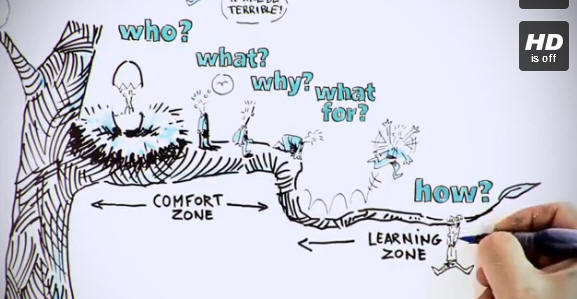 TERRIBLE!
HD
is off
who?
what?
why?
what
for?
how?
COMFORT
ZONE
LEARNING
ZONE